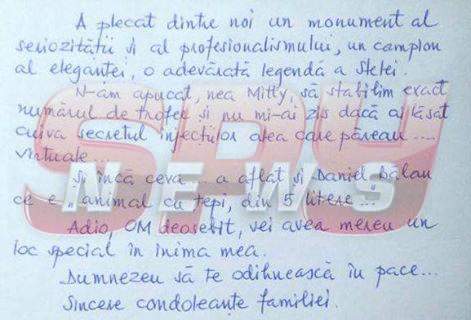 A plecat dintre noi un monument al
seriozității și al profesionalismului, un campion
al eleganței, o adevărată legendă a Stelei.
N-am apucat, nea Mitty, să stabilim exact
numărul de trofee și nu mi-ai zis dacă ai lăsat
cuiva secretul injecțiilor alea care păreau ....
virtuale...
Și încă ceva - a aflat și Daniel Bălan
ce e "animal cu țepi, din 5 litere"...
Adio, OM deosebit, vei avea mereu un
loc special în inima mea.
Dumnezeu să te odihnească în pace...
Sincere condoleanțe familiei.
SPY
NEWS